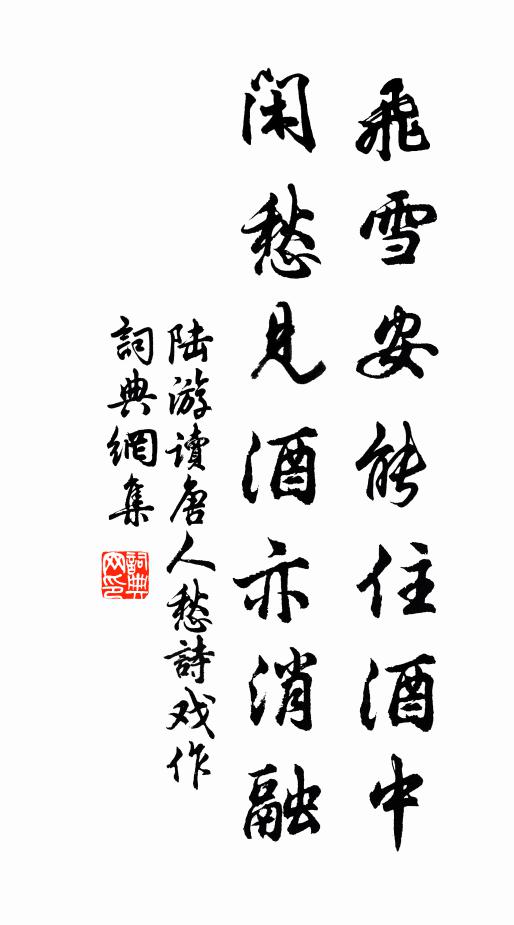 飛雪安能住酒中
閑愁見酒亦消融
陆游讀唐人愁詩戏作
詞典網集
詞典网印